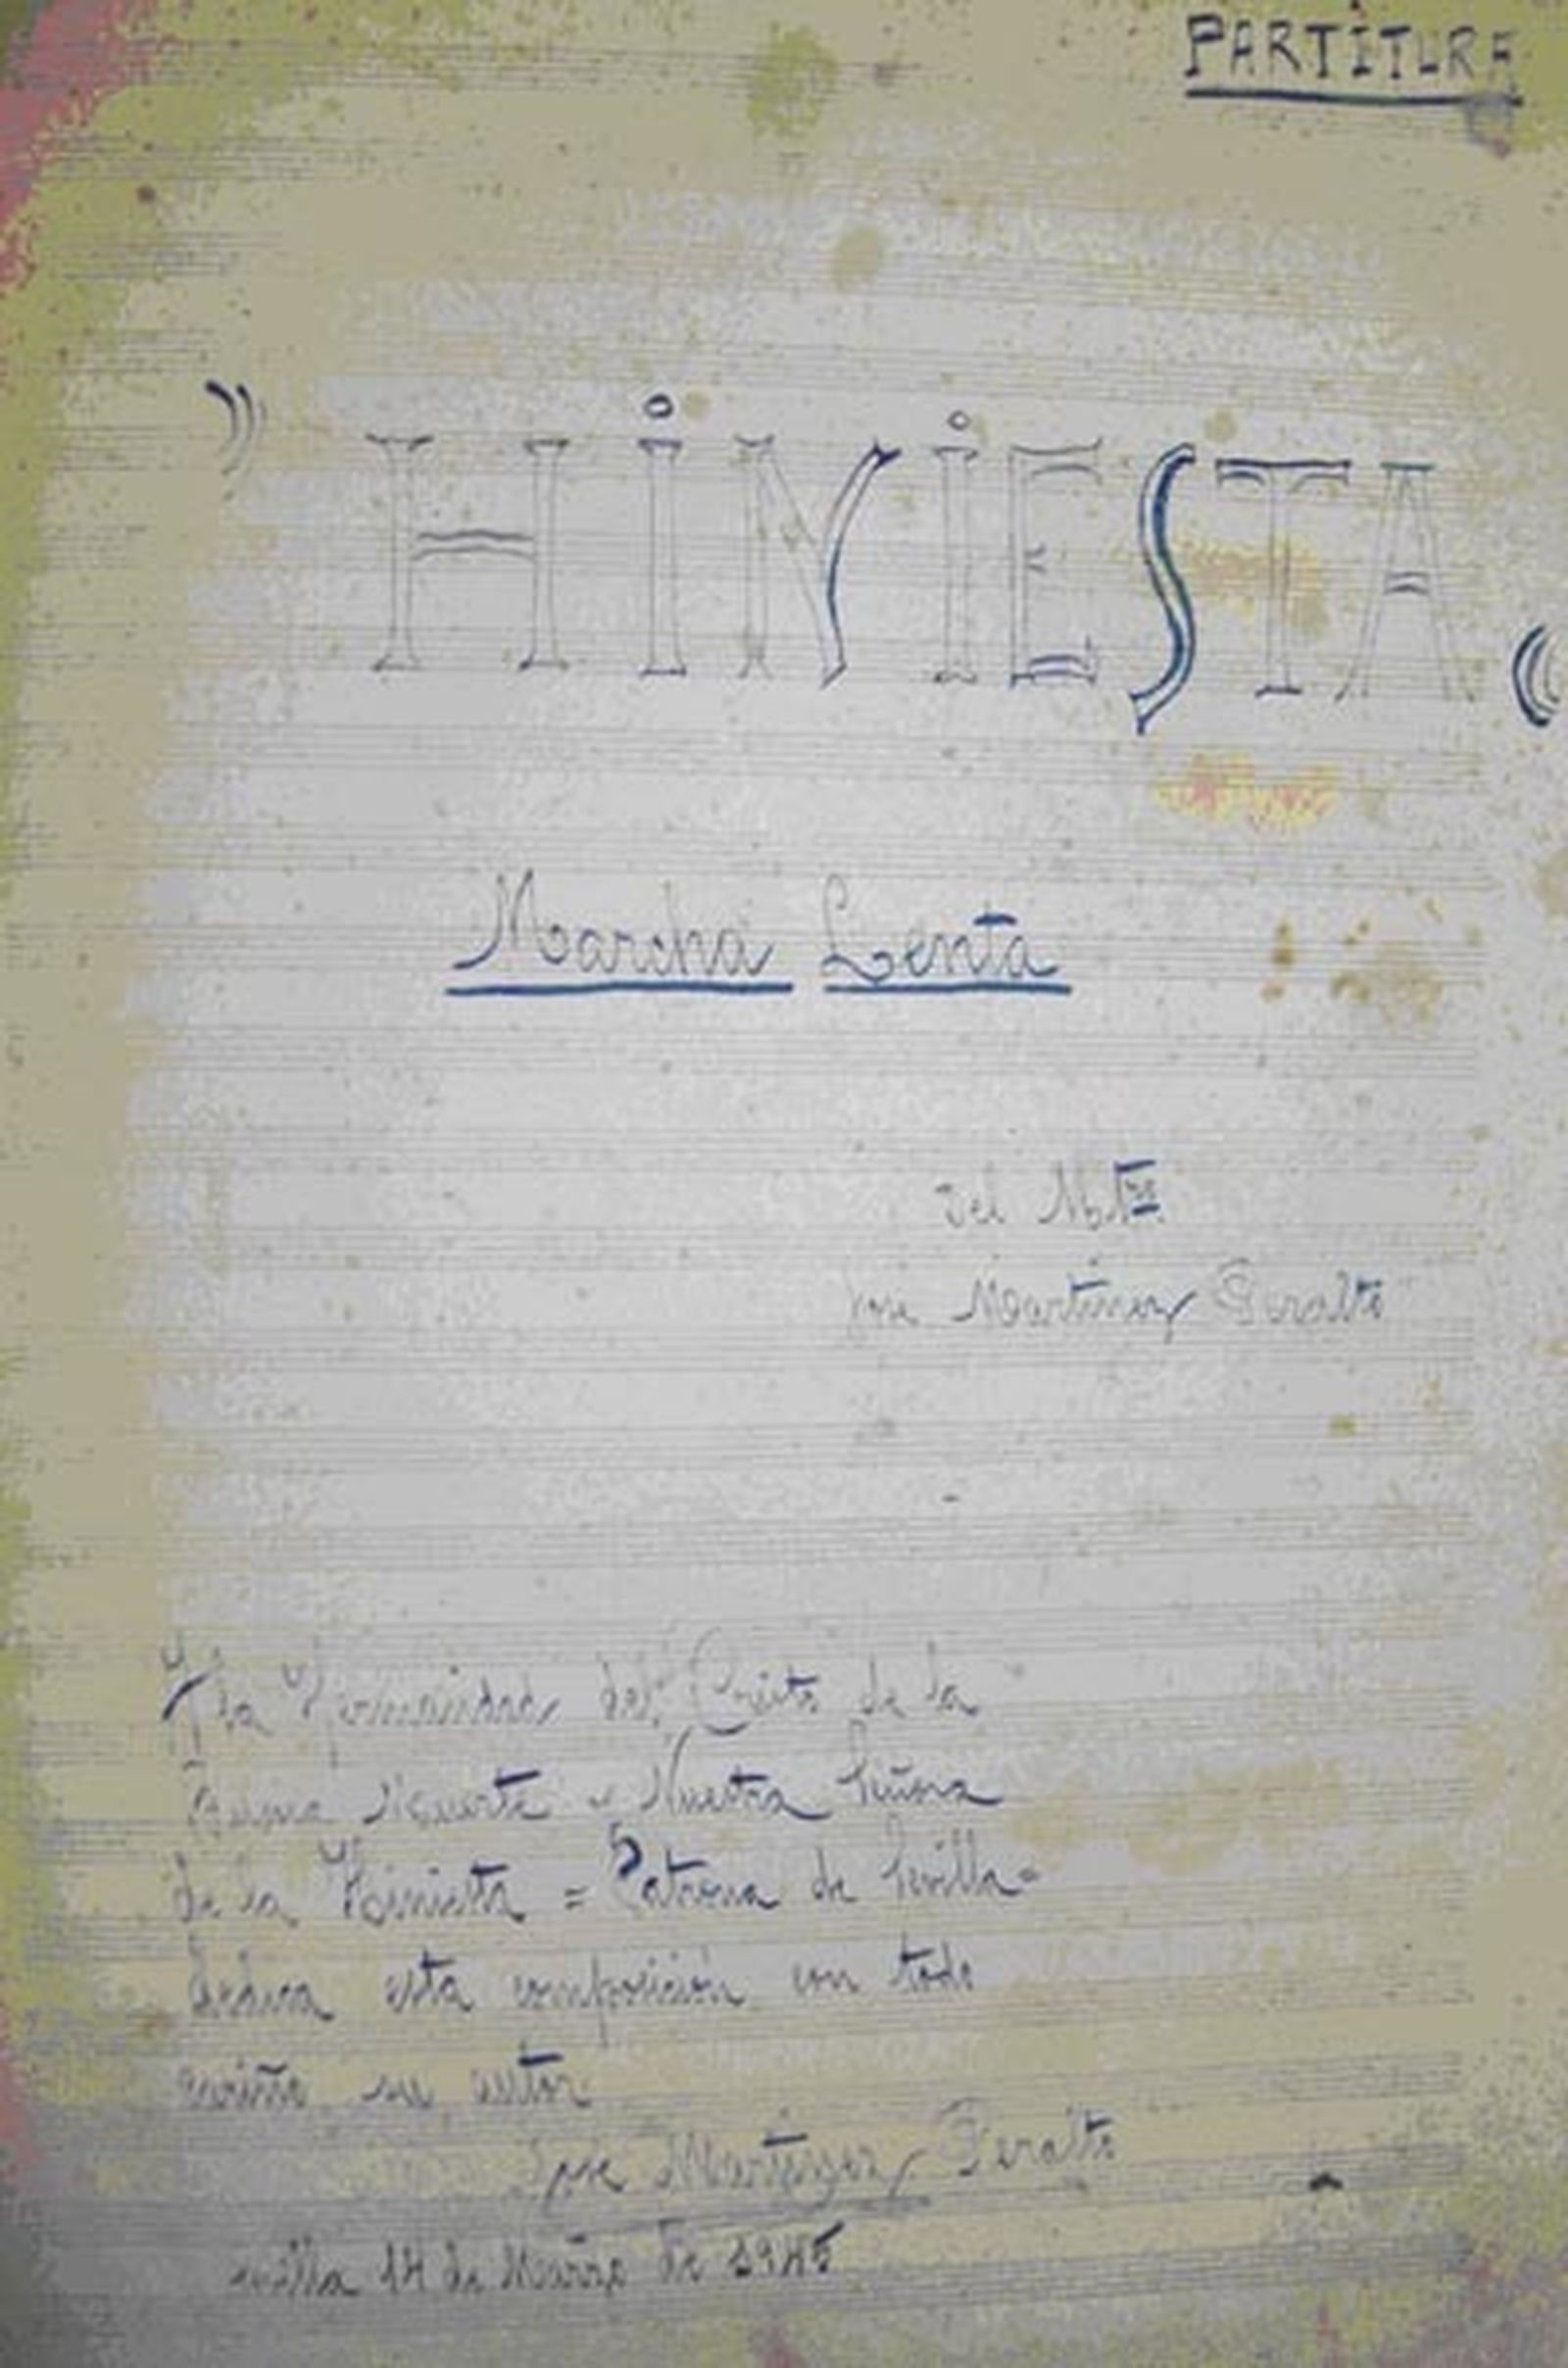 PARTITURA
"HINIESTA"
Marcha Lenta
del Mtro.
Jose Martinez Peralto
A la Hermandad del Cristo de la
Buena Muerte y Nuestra Señora
de la Hiniesta = Patrona de Sevilla =
dedica esta composición con todo
cariño su autor
Jose Martinez Peralto
Sevilla 14 de Marzo de 1945